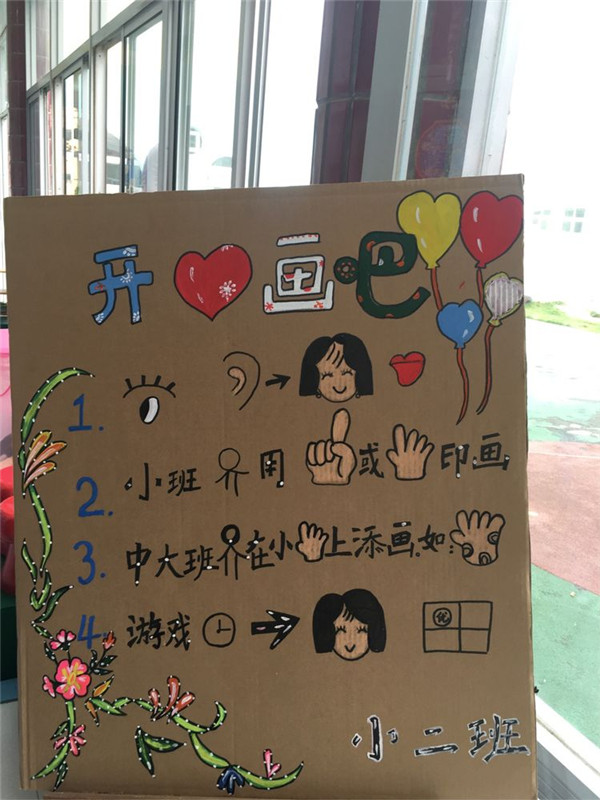 开画吧
1.
2. 小班用或印画
3. 中大班在小上添画.如:
4 游戏
优
小二班